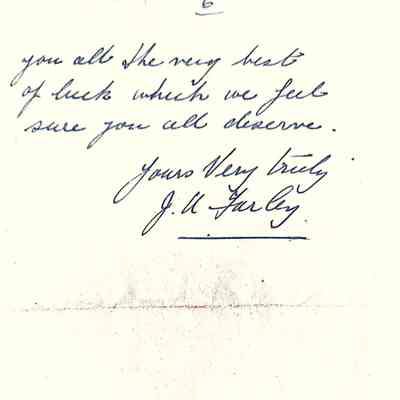 6
you all the very best
of luck which we feel
sure you all deserve.
Yours Very truly
J. A Farley.